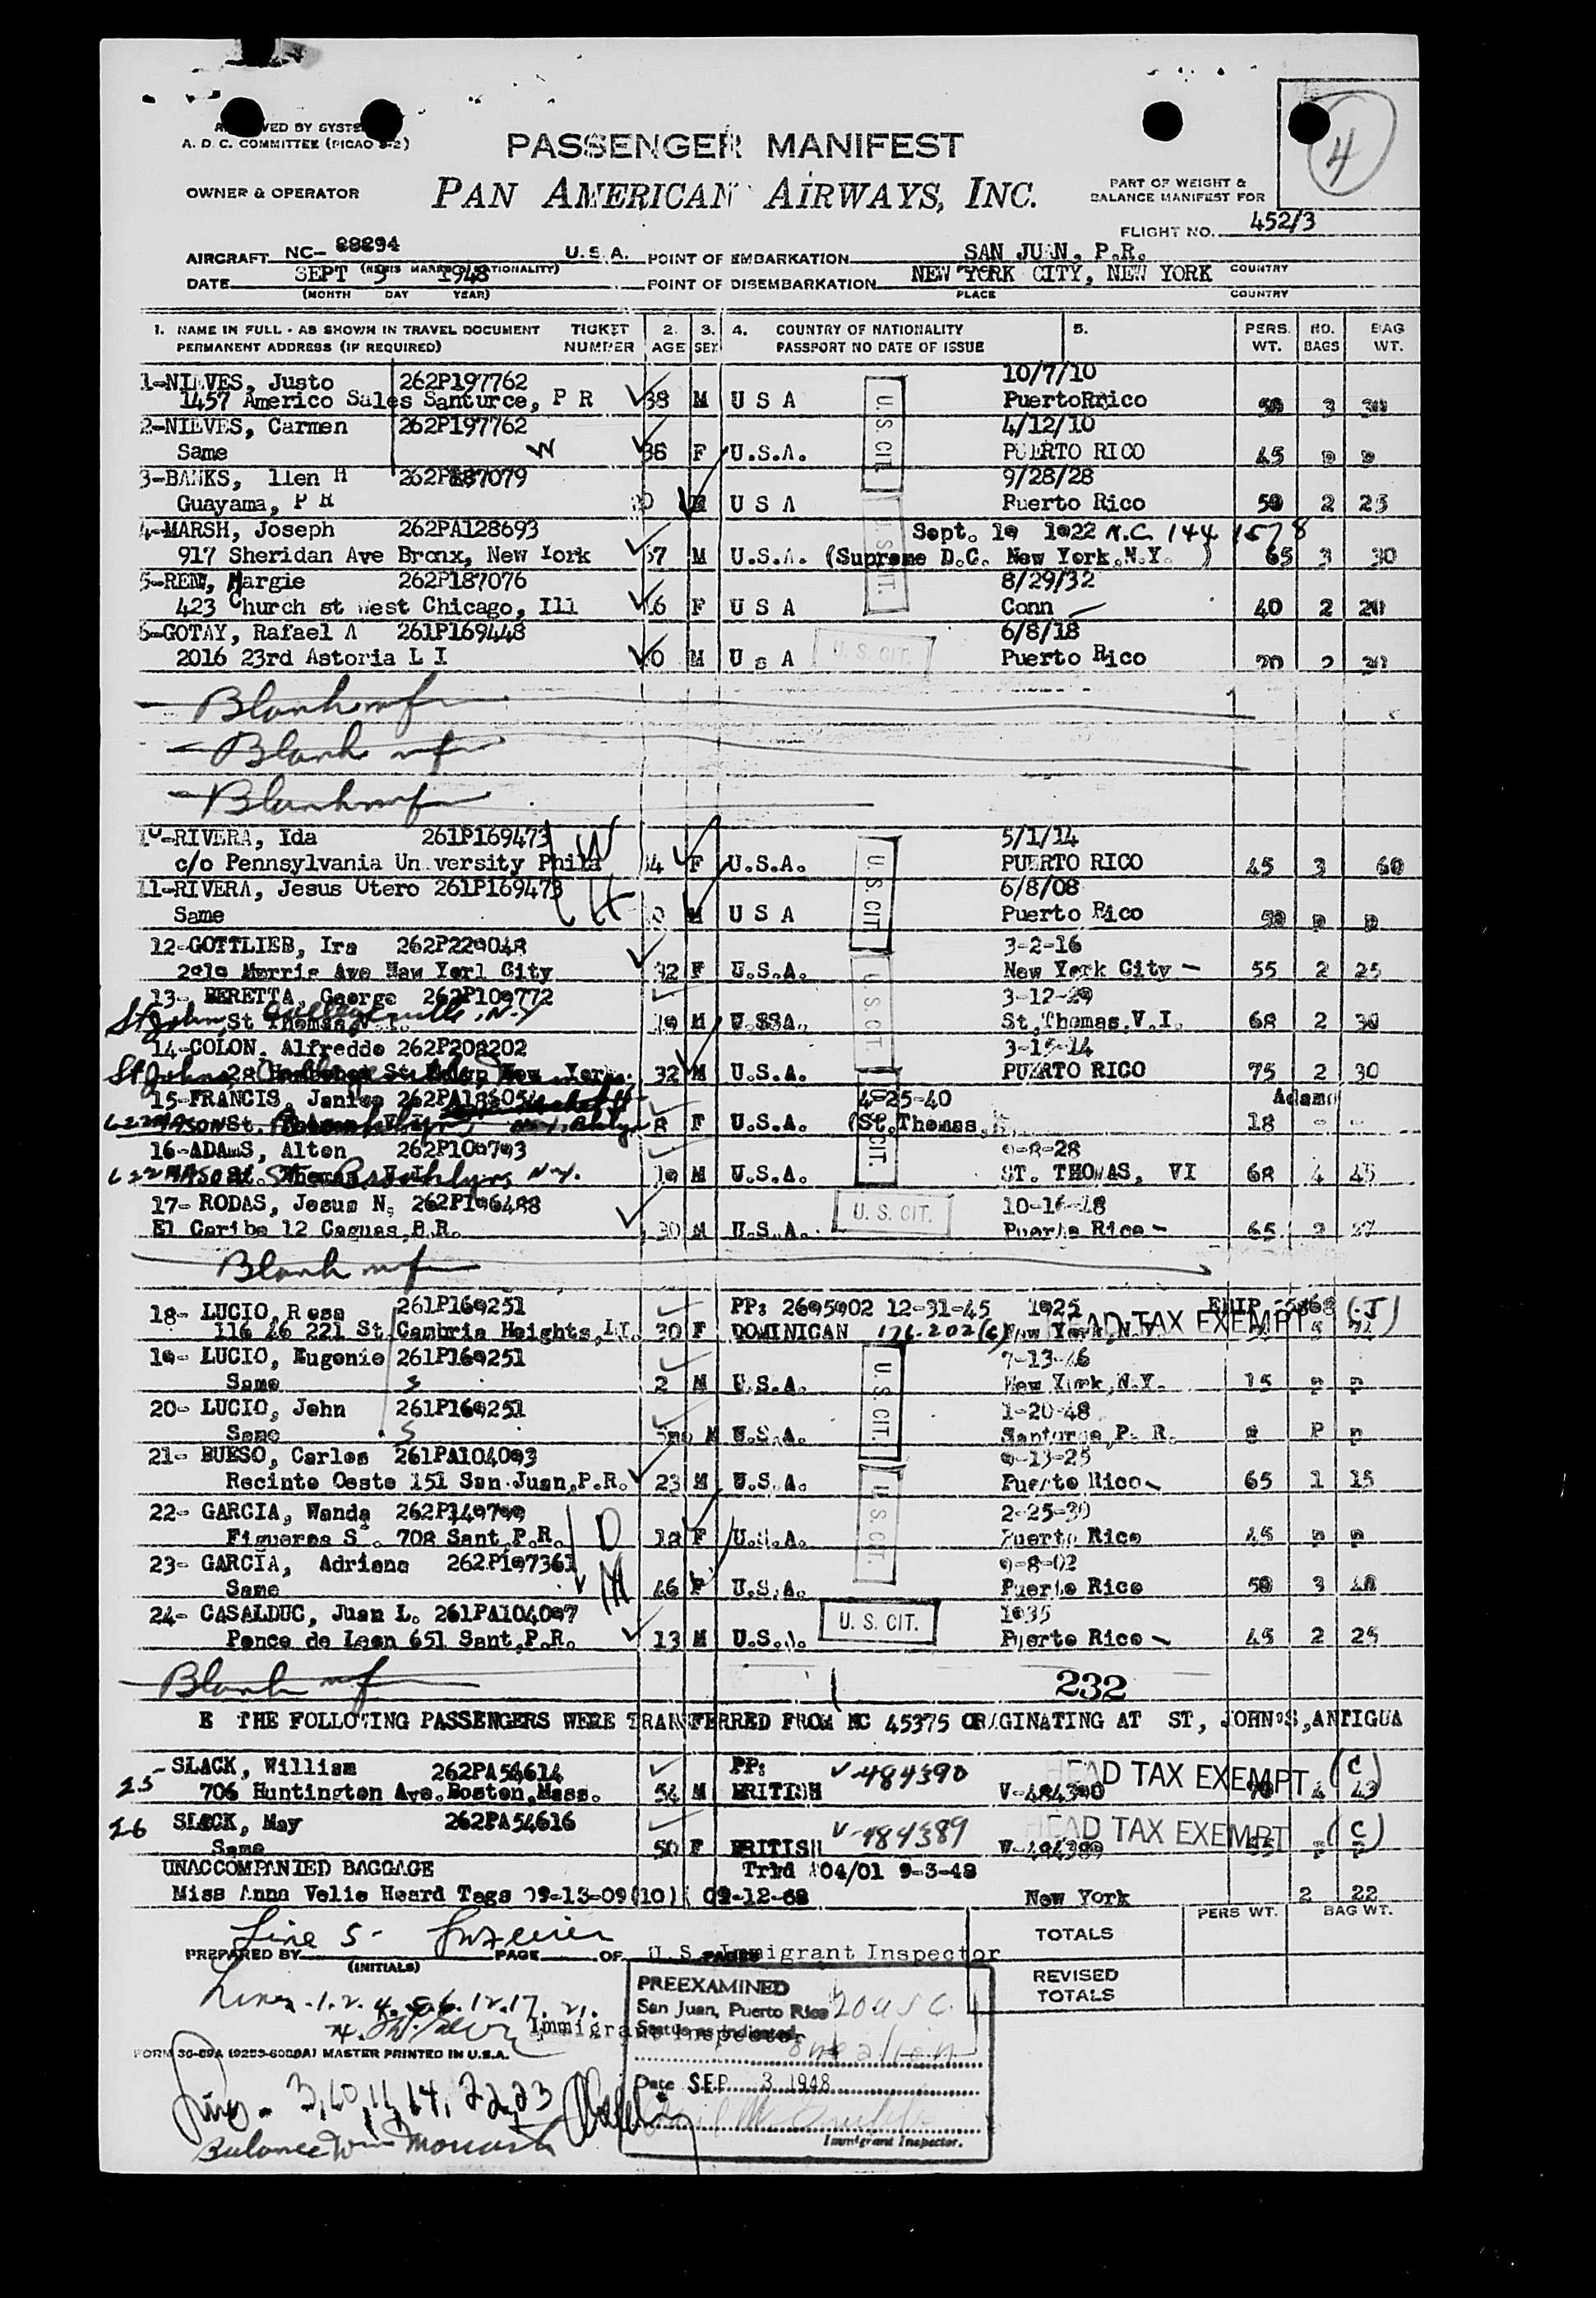 A. D. C. COMMITTEE (PICAO
PASSENGER MANIFEST
4
OWNER & OPERATOR
PAN AMERICAN AIRWAYS, INC.
PART OF WEIGHT &
BALANCE MANIFEST FOR
FLIGHT NO. 452/3
AIRCRAFT NC- 88294 U.S.A. POINT OF EMBARKATION SAN JUAN, P.R.
DATE SEPT 3 1948 POINT OF DISEMBARKATION NEW YORK CITY, NEW YORK COUNTRY
(MONTH DAY YEAR) PLACE COUNTRY
1. NAME IN FULL - AS SHOWN IN TRAVEL DOCUMENT TICKET 2. 3. 4. COUNTRY OF NATIONALITY 5. PERS. NO. BAG
PERMANENT ADDRESS (IF REQUIRED) NUMBER AGE SEX PASSPORT NO DATE OF ISSUE WT. BAGS WT.
1-NIEVES, Justo 262P197762 10/7/10
1457 Americo Sales Santurce, P R 38 M U S A U.S. CIT. 50 3 30
2-NIEVES, Carmen 262P197762 4/12/10
Same W 36 F U.S.A. PUERTO RICO 45 p p
3-BANKS, llen H 9/28/28
Guayama, P R M U S A Puerto Rico 50 2 25
4-MARSH, Joseph 262PA128693 Sept. 19 1922 N.C. 144 1578
917 Sheridan Ave Bronx, New York 57 M U.S.A. (Supreme D.C. New York,N.Y. ) 65 3 30
262P187076 8/29/32
423 Church st West Chicago, Ill 16 F U S A Conn 40 2 20
6-GOTAY, Rafael A 261P169448 6/8/18
2016 23rd Astoria L I M U s A U. S. CIT. Puerto Rico 70 2
Blank
Blank
Blank
10-RIVERA, Ida 261P169473 W 5/1/14
c/o Pennsylvania Un versity Phila 34 F U.S.A. U.S. CIT. PUERTO RICO 45 3 60
11-RIVERA, Jesus Otero 261P169473 H 6/8/08
Same M U S A Puerto Rico 50 p p
12-GOTTLIEB, Ira 262P229048 3-2-16
Morris Ave New Yorl City 32 F U.S.A. New York City 55 2 25
13- BERETTA, George 262P109772 3-12-29
St Thomas,V.I. 19 M U.SSA. U.S. CIT. St,Thomas,V.I. 68 2 30
14-COLON. Alfreddo 262P208202 3-15-14
32 M U.S.A. PUERTO RICO 75 2 30
15-FRANCIS, Janice 4-25-40 Adams
8 F U.S.A. (St.Thomas, 18 - -
16-ADAmS, Alton 262P109793 9-8-28
19 M U.S.A. ST. THOMAS, VI 68 4 45
17- RODAS, Jesus N. 262P196488 10-16-18
El Caribe 12 Caguas,P.R. 30 M U.S.A. U. S. CIT. Puerto Rico 65 2 27
Blank
18- LUCIO,Rosa 261P169251 PP: 2695902 12-31-45 1925
116 46 221 St Cambria Heights,LI. 30 F DOMINICAN New York,N.Y HEAD TAX EXEMPT
19- LUCIO, Eugenio 261P169251 7-13-46
Same S 2 M U.S.A. U.S. CIT. New York,N.Y. 15 p p
20- LUCIO, John 261P169251 1-20-48
Same S M U.S.A. Santurce,P. R. P p
21- BUESO, Carlos 261PA104093 9-13-25
Recinto Oeste 151 San Juan,P.R. 23 M U.S.A. Puerto Rico 65 1 15
22- GARCIA, Wanda 262P149799 D 2-25-30
Figueroa S . 708 Sant,P.R. 18 F U.S.A. U.S. CIT. Puerto Rico 45 p p
23- GARCIA, Adriana 262P197361 M 9-8-02
Same 46 F U.S.A. Puerto Rico 50 3 40
24- CASALDUC, Juan L. 261PA104097 1935
Ponce de Leon 651 Sant,P.R. 13 M U.S.A. U. S. CIT. Puerto Rico 45 2 25
Blank
232
E THE FOLLOWING PASSENGERS WERE TRANSFERRED FROM NC 45375 ORIGINATING AT ST, JOHN'S,ANTIGUA
25 SLACK, William 262PA54614 PP: V-484390 HEAD TAX EXEMPT (C)
706 Huntington Ave.Boston,Mass. 54 M BRITISH V-484390 70 4 43
26 SLACK, May 262PA54616 V-484389 HEAD TAX EXEMPT (C)
Same 50 F BRITISH 55 p p
UNACCOMPANIED BAGGAGE Trfd 404/01 9-3-48
Miss Anna Velie Heard Tags 09-13-09(10) 09-12-68 New York 2 22
PERS WT. BAG WT.
Line 5-
PREPARED BY PAGE OF PAGES TOTALS
(INITIALS)
U. S. Immigrant Inspector
REVISED
TOTALS
Lines 1. 2. 4. 5 6. 12. 17. 21.
Immigrant Inspector
PREEXAMINED
San Juan, Puerto Rico 20 U S C.
Status as indicated
one alien
Date SEP 3 1948
Immigrant Inspector.
FORM 36-89A MASTER PRINTED IN U.S.A.
Lines - 3, 10, 11, 14, 22, 23
Balance